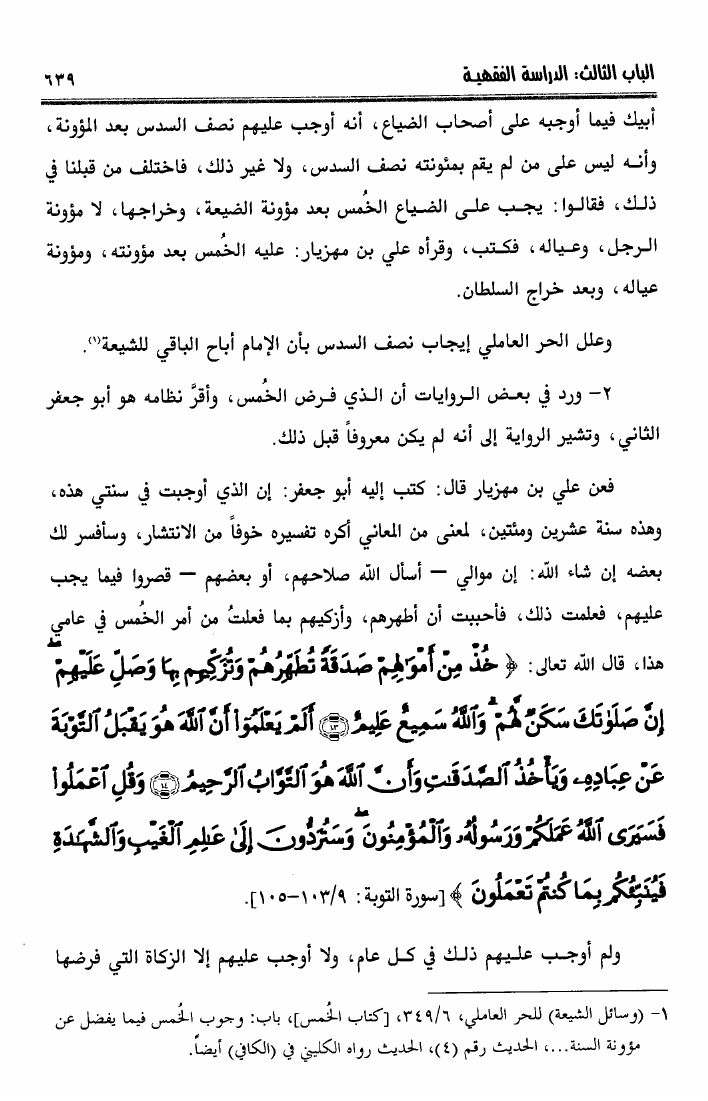 الباب الثالث: الدراسة الفقهية ٦٣٩
أبيك فيما أوجبه على أصحاب الضياع، أنه أوجب عليهم نصف السدس بعد المؤونة،
وأنه ليس على من لم يقم بمئونته نصف السدس، ولا غير ذلك، فاختلف من قبلنا في
ذلك، فقالوا: يجب على الضياع الخُمس بعد مؤونة الضيعة، وخراجها، لا مؤونة
الرجل، وعياله، فكتب، وقرأه علي بن مهزيار: عليه الخُمس بعد مؤونته، ومؤونة
عياله، وبعد خراج السلطان.
وعلل الحر العاملي إيجاب نصف السدس بأن الإمام أباح الباقي للشيعة(١).
٢- ورد في بعض الروايات أن الذي فرض الخُمس، وأقرَّ نظامه هو أبو جعفر
الثاني، وتشير الرواية إلى أنه لم يكن معروفاً قبل ذلك.
فعن علي بن مهزيار قال: كتب إليه أبو جعفر: إن الذي أوجبت في سنتي هذه،
وهذه سنة عشرين ومئتين، لمعنى من المعاني أكره تفسيره خوفاً من الانتشار، وسأفسر لك
بعضه إن شاء الله: إن موالي – أسأل الله صلاحهم، أو بعضهم – قصروا فيما يجب
عليهم، فعلمت ذلك، فأحببت أن أطهرهم، وأزكيهم بما فعلتُ من أمر الخُمس في عامي
هذا، قال الله تعالى: ﴿ خُذْ مِنْ أَمْوَٰلِهِمْ صَدَقَةً تُطَهِّرُهُمْ وَتُزَكِّيهِم بِهَا وَصَلِّ عَلَيْهِمْ ۖ
إِنَّ صَلَوٰتَكَ سَكَنٌ لَّهُمْ ۗ وَٱللَّهُ سَمِيعٌ عَلِيمٌ ۝ أَلَمْ يَعْلَمُوٓا۟ أَنَّ ٱللَّهَ هُوَ يَقْبَلُ ٱلتَّوْبَةَ
عَنْ عِبَادِهِۦ وَيَأْخُذُ ٱلصَّدَقَٰتِ وَأَنَّ ٱللَّهَ هُوَ ٱلتَّوَّابُ ٱلرَّحِيمُ ۝ وَقُلِ ٱعْمَلُوا۟
فَسَيَرَى ٱللَّهُ عَمَلَكُمْ وَرَسُولُهُۥ وَٱلْمُؤْمِنُونَ ۖ وَسَتُرَدُّونَ إِلَىٰ عَٰلِمِ ٱلْغَيْبِ وَٱلشَّهَٰدَةِ
فَيُنَبِّئُكُم بِمَا كُنتُمْ تَعْمَلُونَ ﴾ [سورة التوبة: ١٠٣/٩-١٠٥].
ولم أوجب عليهم ذلك في كل عام، ولا أوجب عليهم إلا الزكاة التي فرضها
١- (وسائل الشيعة) للحر العاملي، ٣٤٩/٦، [كتاب الخُمس]، باب: وجوب الخُمس فيما يفضل عن
مؤونة السنة...، الحديث رقم (٤)، الحديث رواه الكليني في (الكافي) أيضاً.